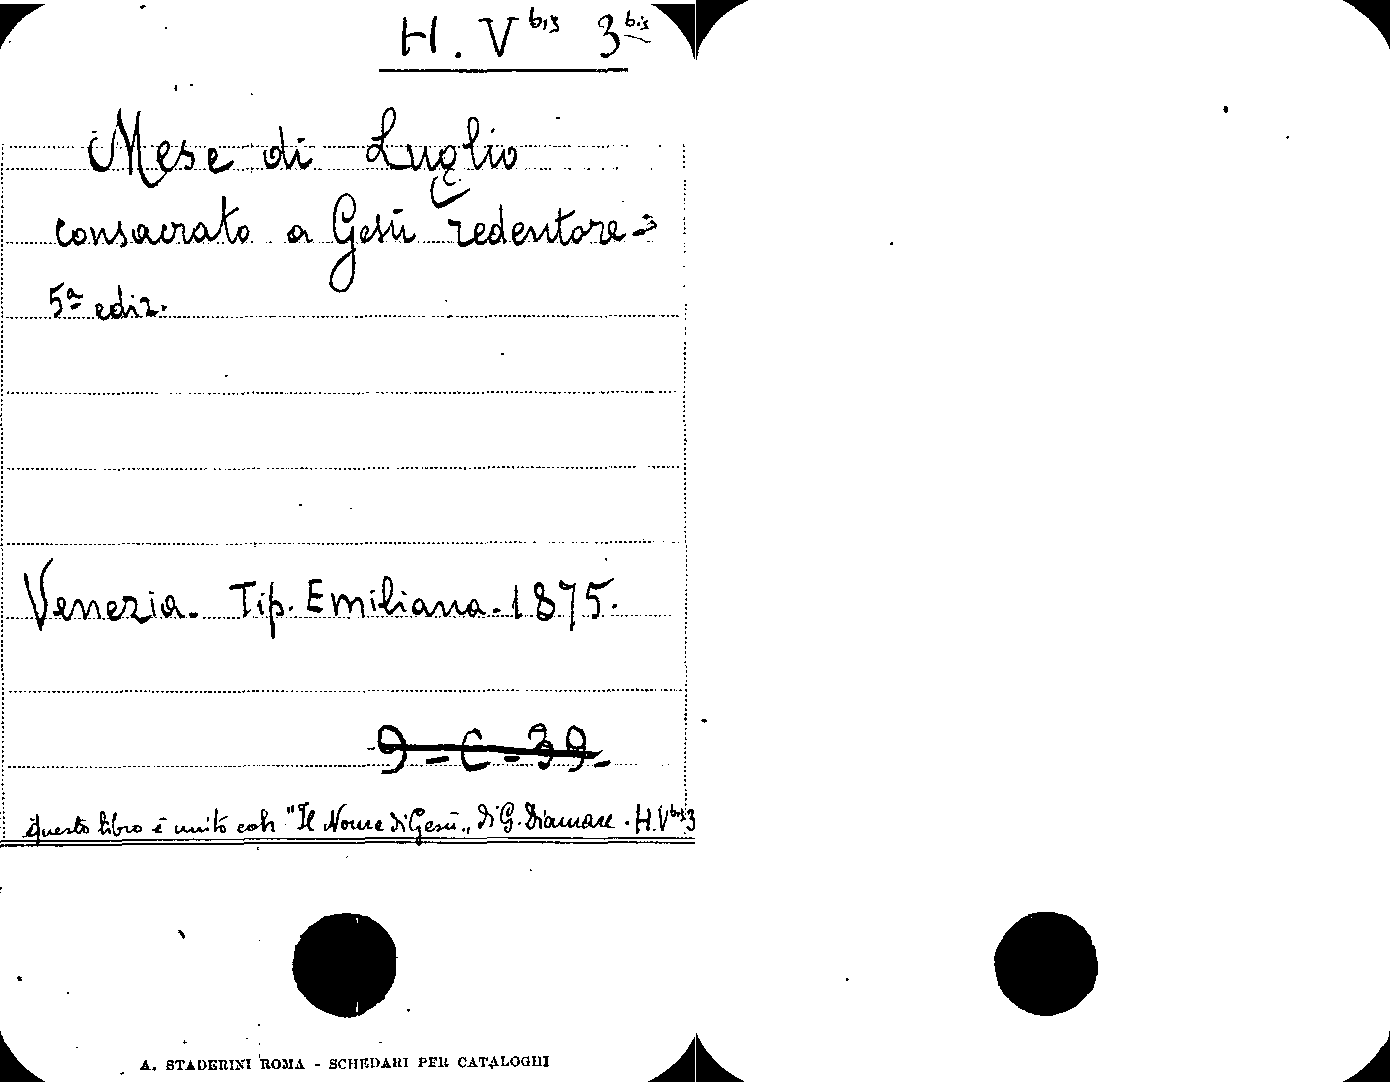 H. V bis 3 bis
Mese di Luglio
consacrato a Gesù redentore =
5ª ediz.
Venezia. Tip. Emiliana. 1875.
9 - C - 39 -
Questo libro è unito coh "Il Nome di Gesù" di G. Diamare. H. V bis 3
A. STADERINI ROMA - SCHEDARI PER CATALOGHI